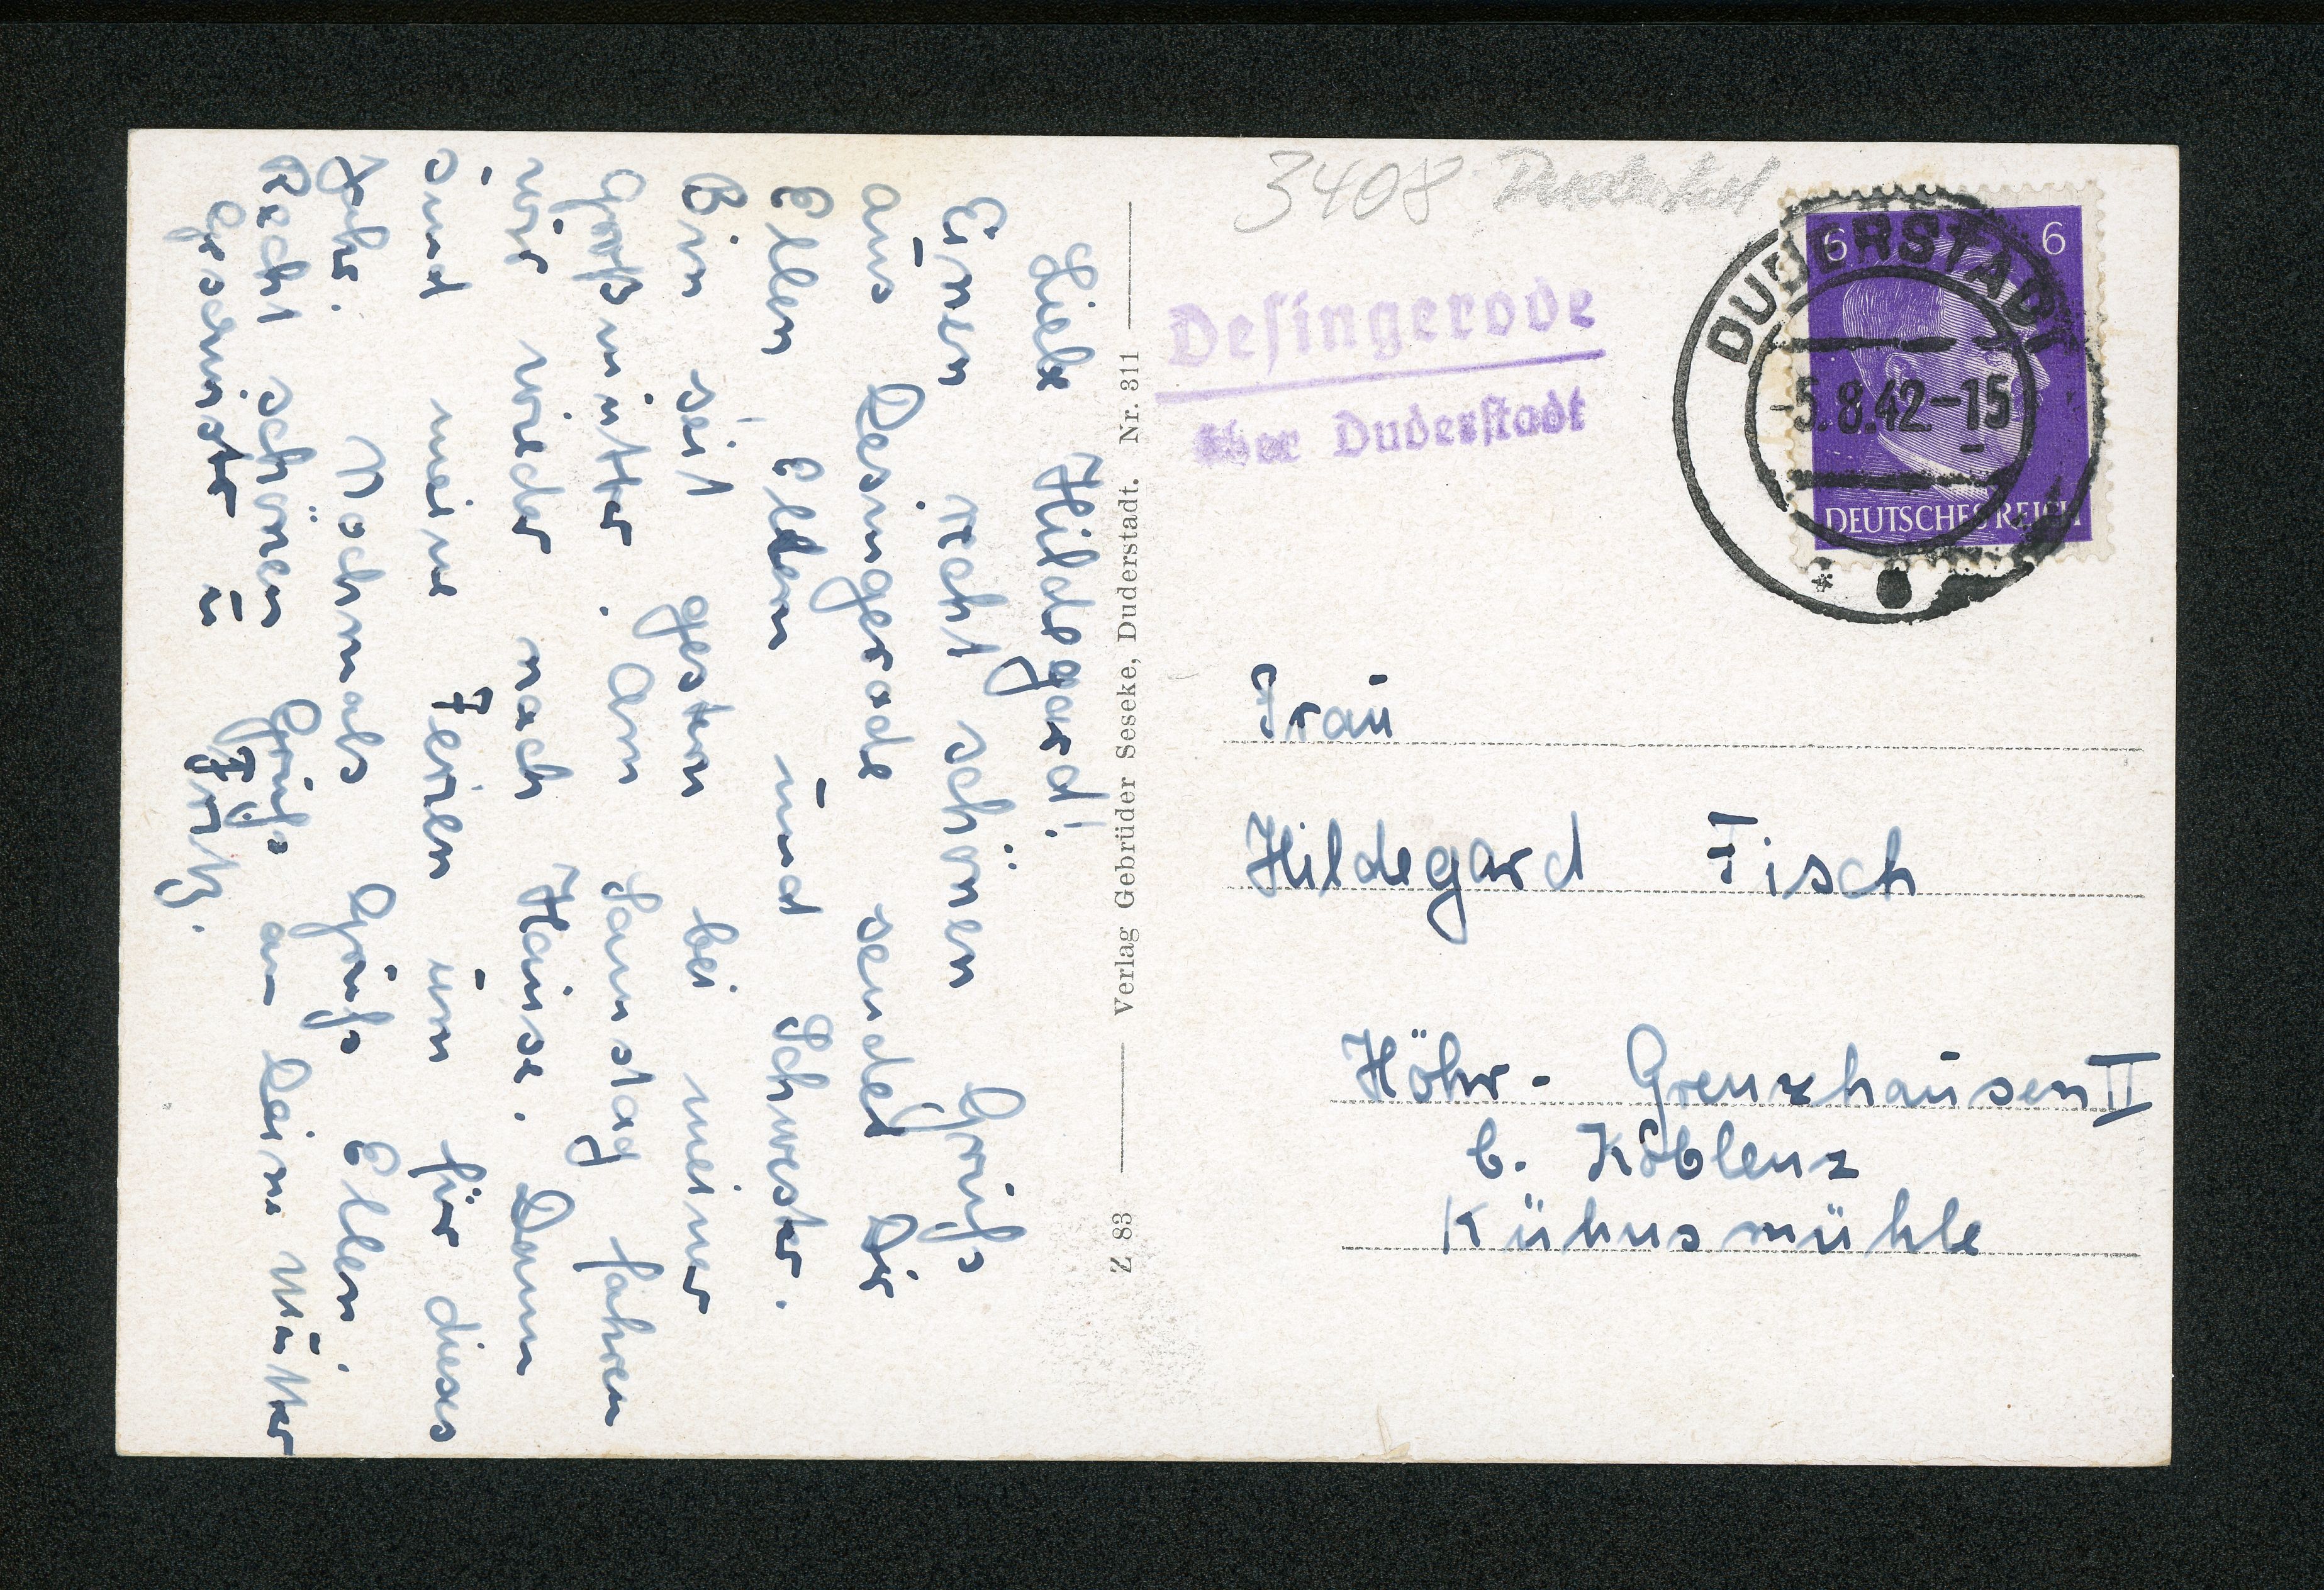 Liebe Hildegard!
Einen recht schönen Gruß
aus Desingerode sendet Dir
Ellen. Eltern und Schwester.
Bin seit gestern bei meiner
Großmutter. Am Samstag fahren
wir wieder nach Hause. Dann
sind meine Ferien um für dieses
Jahr. Nochmals Gruß Ellen.
Recht schönen Gruß an Deine Mutter
Geschwister u Fritz.
Z 83 Verlag Gebrüder Seseke, Duderstadt. Nr. 311
3408 Duderstadt
Desingerode
über Duderstadt
6 6
DEUTSCHES REICH
DUDERSTADT
-5.8.42-15
Frau
Hildegard Fisch
Höhr-Grenzhausen II
b. Koblenz
Kühnsmühle